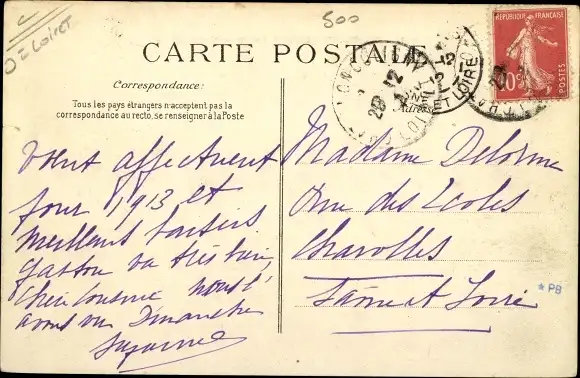 500
Loiret
CARTE POSTALE
REPUBLIQUE FRANÇAISE
10c
POSTES
28 12
ET LOIRE
Correspondance:
Tous les pays étrangers n'acceptent pas la
correspondance au recto, se renseigner à la Poste
Vœux affectueux
pour 1913 et
meilleurs baisers
Gaston va très bien,
Chère cousine nous l'
avons vu Dimanche
Suzanne
Madame Delorme
rue des Ecoles
Charolles
Saône et Loire
* PB